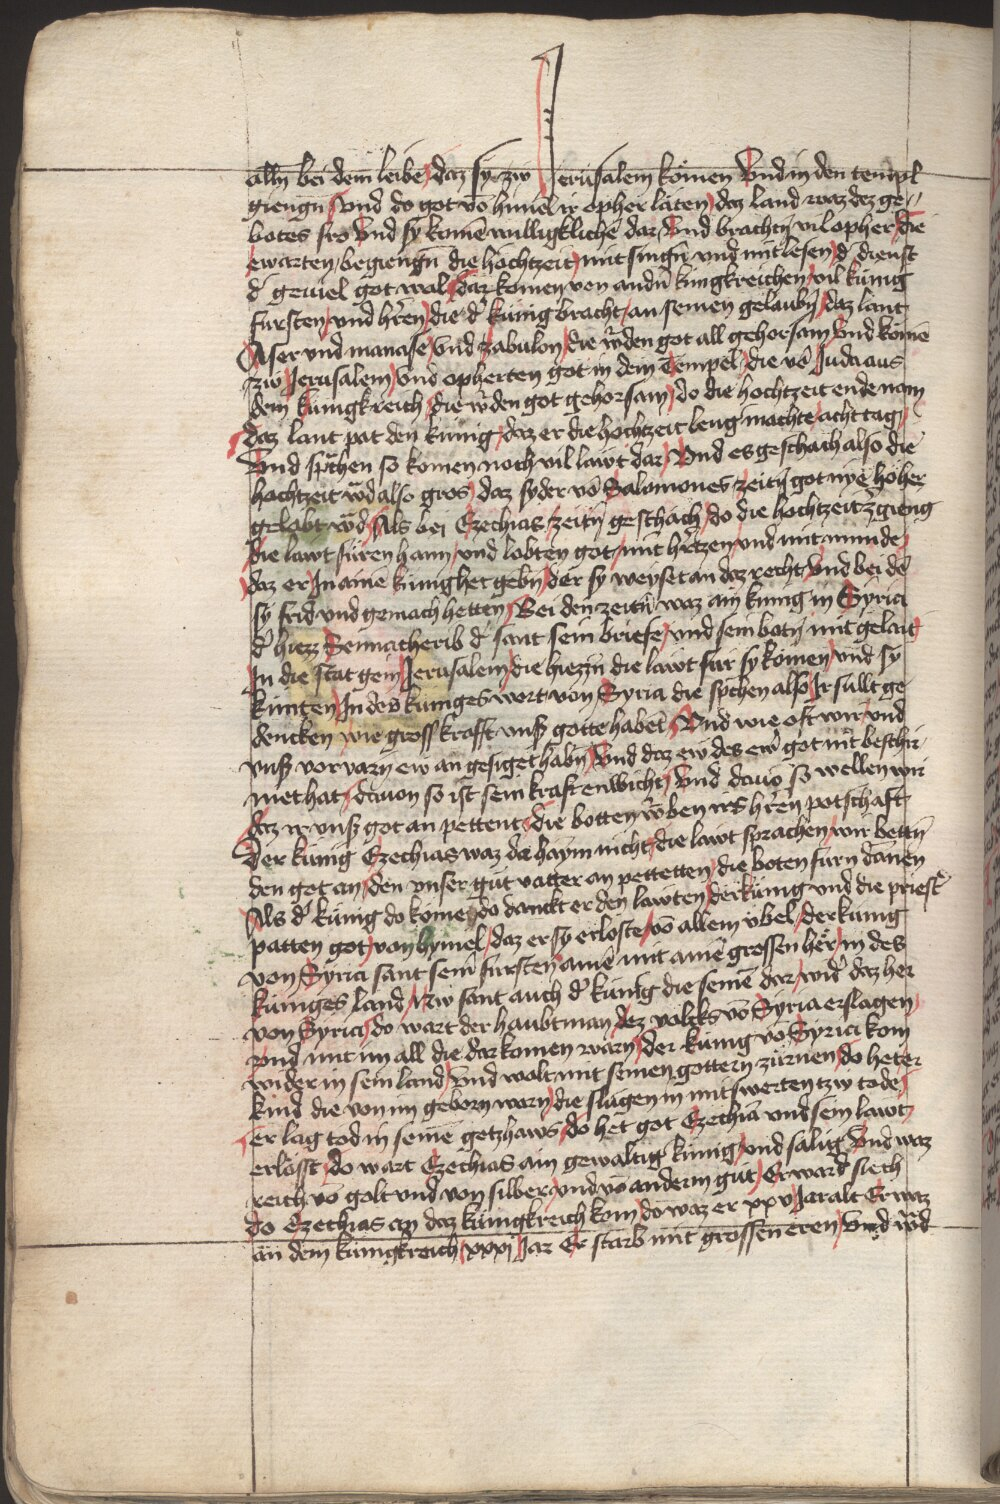 alln bei dem leibe / daz sy zw Jerusalem kömen Vnd in den templ
giengn / Vnd do got vō himel ir opher läten / daz land waz dez ge„
botes fro Vnd sy komē willigkliche dar / Vnd brachtn vil opher / die
ewarten / begiengn die hochtzeit / mit singn vnd mit lesen / d' dienst
d' geuiel got wol / Dar komen von andn kungkreichen / vil künig
fursten / vnd hr̄en / die d' künig bracht / an seinen gelaubn / daz lant
Aser vnd manase / Vnd zabulon / die w̄den got all gehorsam Vnd komē
zw Jerusalem / Vnd opherten got in dem Tempel / die vō Juda aus
dem kungkreich / die w̄den got gehorsam / do die hochtzeit ende nam
daz lant pat den kunig / daz er die hochtzeit leng machte / acht tag /
Vnd sp̄chen so komen noch vil lawt dar / Vnd es geschach also die
hochtzeit w̄d also gros / daz syder vō Salomones zeitn got nye höher
gelobt w̄d / Als bei Ezechias zeitn geschach / do die hochtzeit z̄gieng
die lawt füren haim / vnd lobten got / mit hr̄tzen / vnd mit munde
daz er In ainē künig het gebn / der sy weyset an daz recht / Vnd bei dē
sy frid vnd gemach hetten / Bei den zeitn waz ain kunig in Syria
d' hiezz Sennacherib d' sant sein briefe / vnd sein botn mit gelait
In die stat gein Jerusalem / die hiezzn die lawt fur sy kömen / vnd sy
künten In des kuniges wort von Syria die sp̄chen also Ir sullt ge
dencken wie gross krafft vnss gotte haben / Vnd wie oft wir / vnd
vnss vorvarn ew an gesiget habn / Vnd daz ew des ew̄ got nit beschir„
met hat / davon so ist sein kraft enwicht / Vnd davō so wellen wir
daz ir vnss got an pettent / die botten w̄ben irs hr̄en potschaft
Der künig Ezechias waz da haym nicht / die lawt sprachen wir bettn
den got an / den vnser gut vatter an pettetten / die boten furn dānen
Als d' künig do kome / do danckt er den lawten / der künig vnd die priest'
patten got / von hymel / daz er sy erloste / vō allem vbel / der kunig
von Syria sant sem̄ fursten ainē mit ainē grossen hër / in des
küniges land / Nw sant auch d' kunig die seinē dar / wid' daz her
von Syria / do wart der haubtman dez volcks vō Syria erslagen
vnd mit im all die dar komen warn / der künig vō Syria kom
wider in sein land / vnd wolt mit seinen gottern zürnen / do heter
kind die von im geborn warn / die slugen in mit swerten tzw tode /
er lag tod in seinē getzhaws / do het got Ezechiā vnd sein lawt
erlösst / do wart Ezechias ain gewaltig kunig / vnd sälig Vnd waz
reich vō golt vnd von silber / vnd vō anderm gut / Er ward siech
do Ezechias an daz kungkreich kom / do waz er xxv Jar alt Er waz
an dem kungkreich / xxxj Jar Er starb mit grossen eren / Vnd w̄d